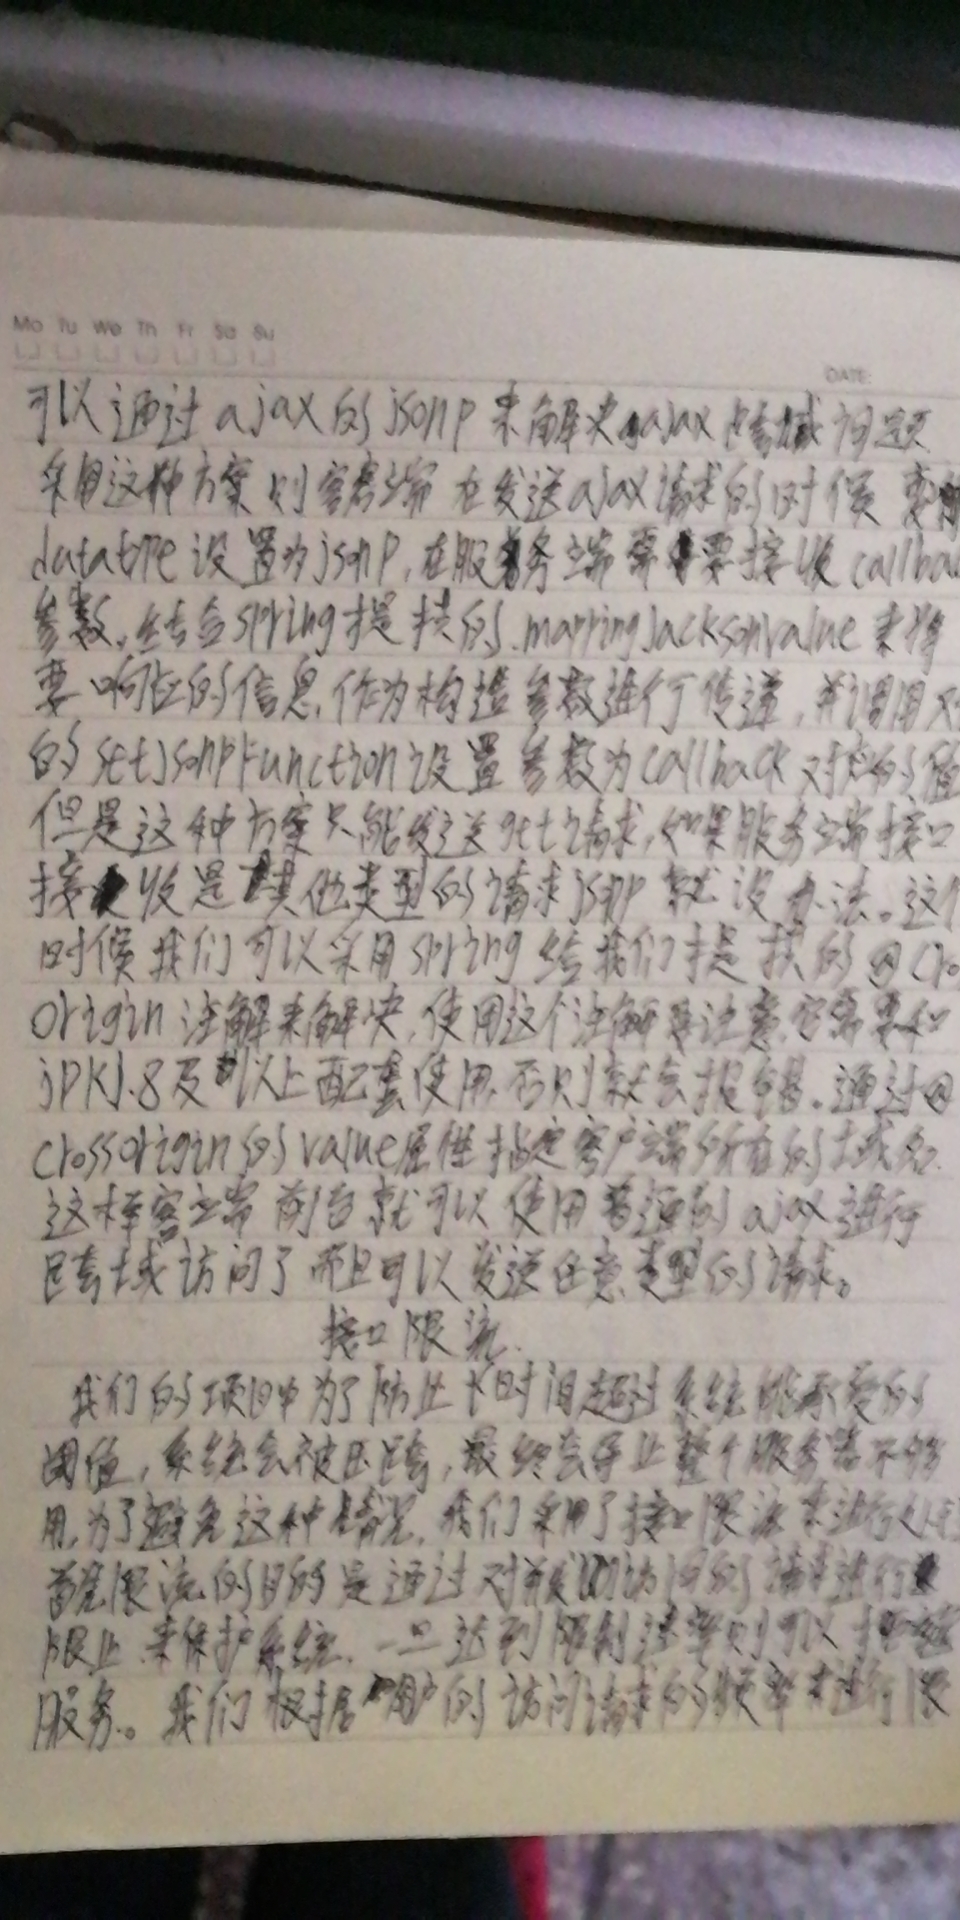 Mo Tu We Th Fr Sa Su
DATE:
可以通过ajax的jsonp来解决ajax跨域问题
采用这种方案则客户端在发送ajax请求的时候要
datatype设置为jsonp,在服务端需要接收callbac
参数,结合spring提供的mappingJacksonvalue来将
要响应的信息,作为构造参数进行传递,并调用对
的setJsonpFunction设置参数为callback对应的值
但是这种方案只能发送get请求,如果服务端接口
接收是其他类型的请求jsonp就没办法。这个
时候我们可以采用spring给我们提供的@Cro
Origin注解来解决,使用这个注解要注意它需要和
jDK1.8及以上配套使用,否则就会报错。通过@
crossorigin的value属性指定客户端所在的域名.
这样客户端前台就可以使用普通的ajax进行
跨域访问了而且可以发送任意类型的请求。
接口限流.
我们的项目中为了防止 时间超过系统能承受的
阈值,系统会被压垮,最终会导止整个服务器不够
用,为了避免这种情况,我们采用了接口限流来进行处理
首先限流的目的是通过对并发访问的请求进行
限止来保护系统.一旦达到限制速率则可以拒绝
服务。我们根据用户的访问请求的频率来进行限